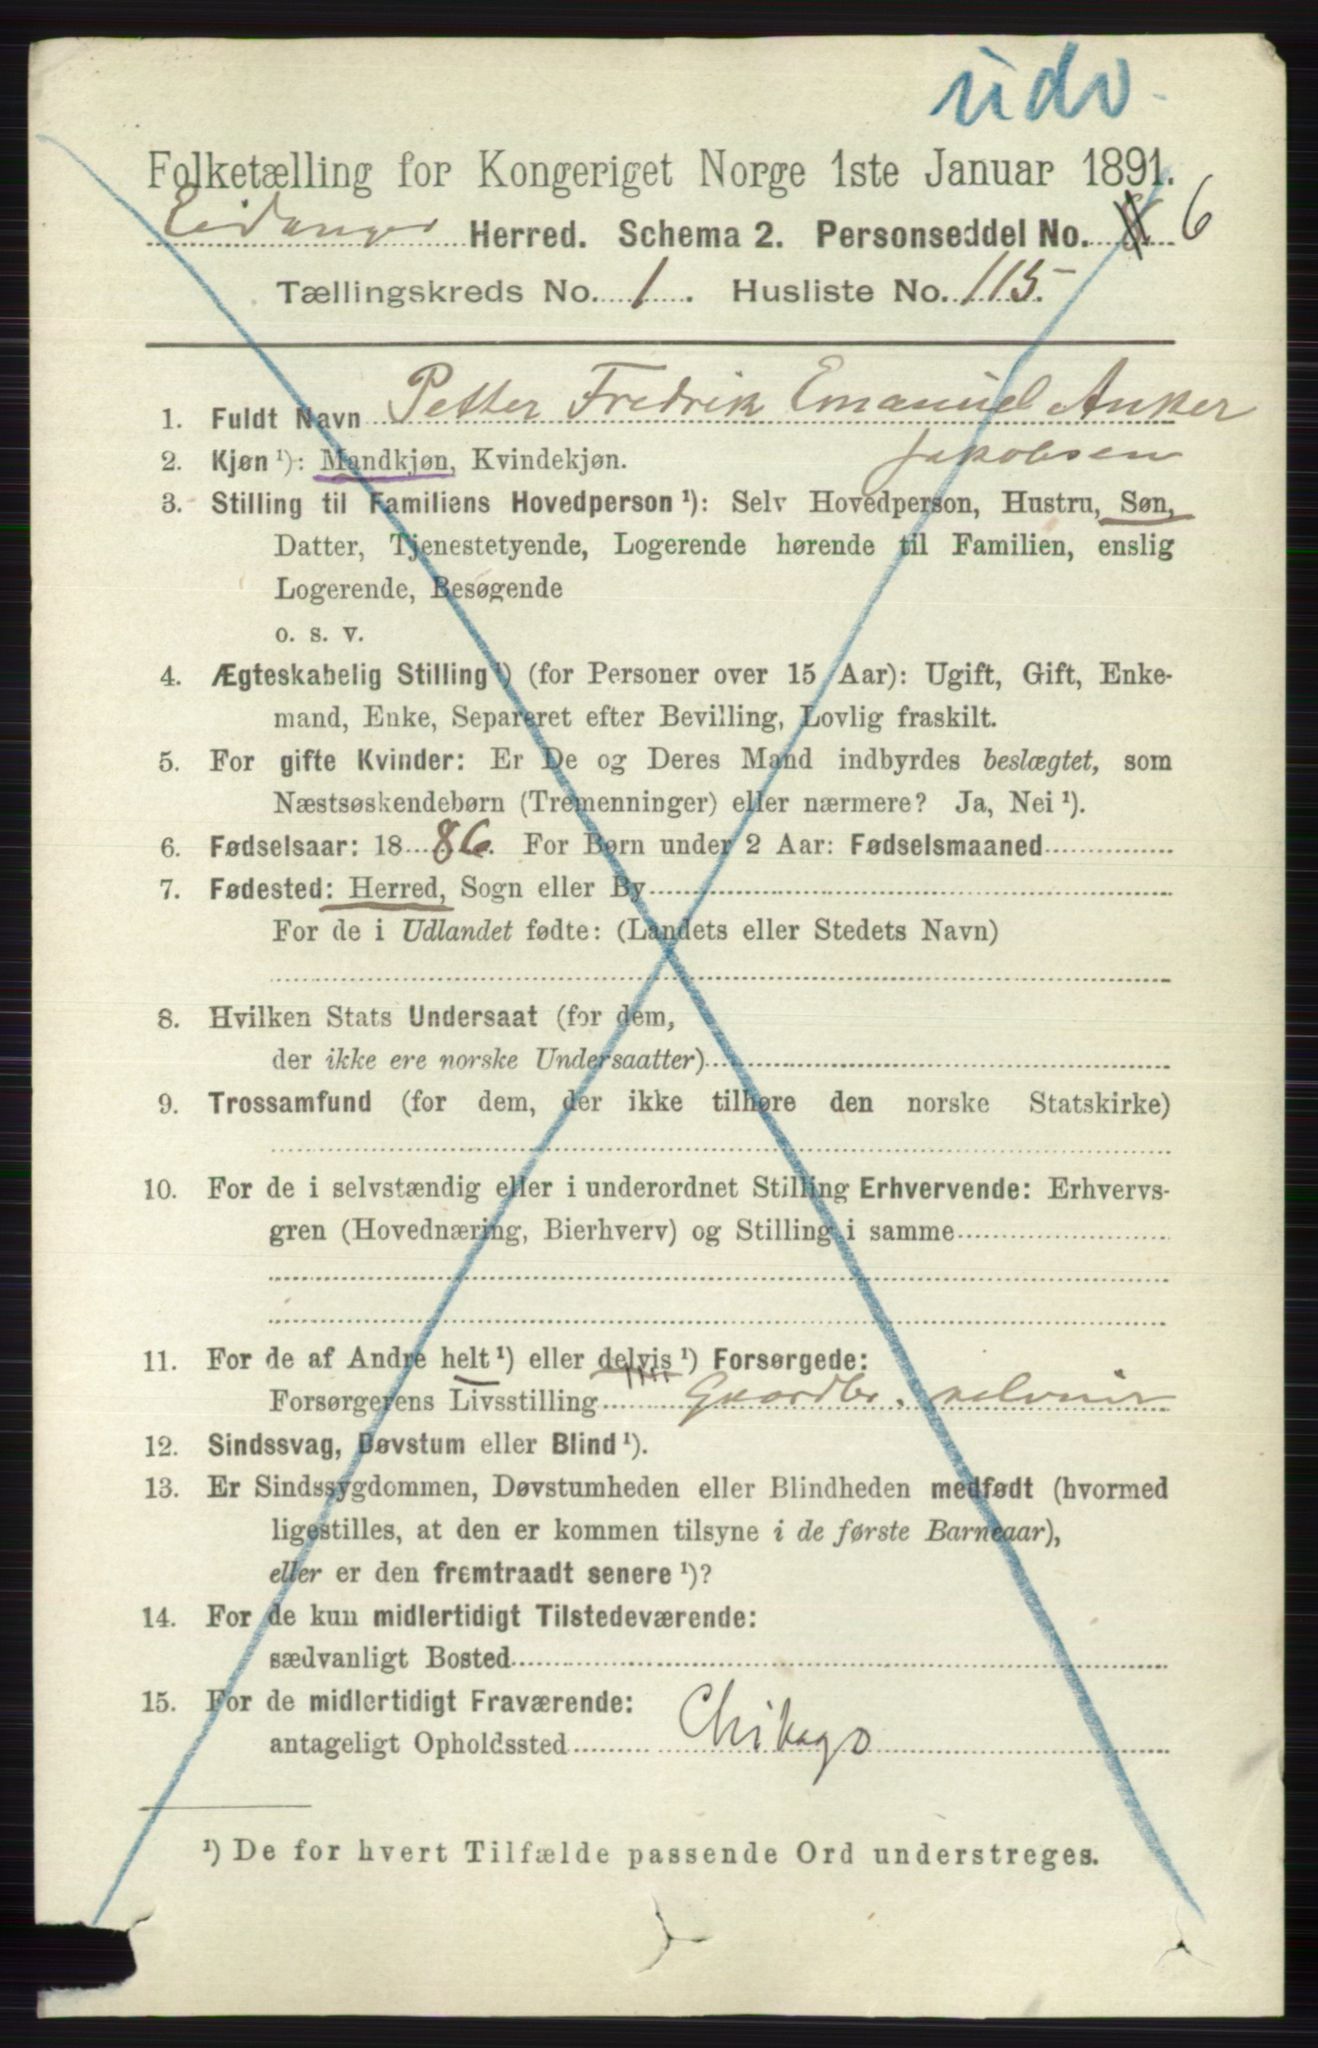 udv.
Folketælling for Kongeriget Norge 1ste Januar 1891.
Eidanger Herred. Schema 2. Personseddel No. 6
Tællingskreds No. 1. Husliste No. 115.
1. Fuldt Navn Petter Fredrik Emanuel Anker
Jakobsen
2. Kjøn ¹): Mandkjøn, Kvindekjøn.
3. Stilling til Familiens Hovedperson ¹): Selv Hovedperson, Hustru, Søn,
Datter, Tjenestetyende, Logerende hørende til Familien, enslig
Logerende, Besøgende
o. s. v.
4. Ægteskabelig Stilling ¹) (for Personer over 15 Aar): Ugift, Gift, Enke-
mand, Enke, Separeret efter Bevilling, Lovlig fraskilt.
5. For gifte Kvinder: Er De og Deres Mand indbyrdes beslægtet, som
Næstsøskendebørn (Tremenninger) eller nærmere? Ja, Nei ¹).
6. Fødselsaar: 1886. For Børn under 2 Aar: Fødselsmaaned
7. Fødested: Herred, Sogn eller By
For de i Udlandet fødte: (Landets eller Stedets Navn)
8. Hvilken Stats Undersaat (for dem,
der ikke ere norske Undersaatter)
9. Trossamfund (for dem, der ikke tilhøre den norske Statskirke)
10. For de i selvstændig eller i underordnet Stilling Erhvervende: Erhvervs-
gren (Hovednæring, Bierhverv) og Stilling i samme
11. For de af Andre helt ¹) eller delvis ¹) Forsørgede:
Forsørgerens Livsstilling Gaardbr.
12. Sindssvag, Døvstum eller Blind ¹).
13. Er Sindssygdommen, Døvstumheden eller Blindheden medfødt (hvormed
ligestilles, at den er kommen tilsyne i de første Barneaar),
eller er den fremtraadt senere ¹)?
14. For de kun midlertidigt Tilstedeværende:
sædvanligt Bosted
15. For de midlertidigt Fraværende:
antageligt Opholdssted Chikago
¹) De for hvert Tilfælde passende Ord understreges.